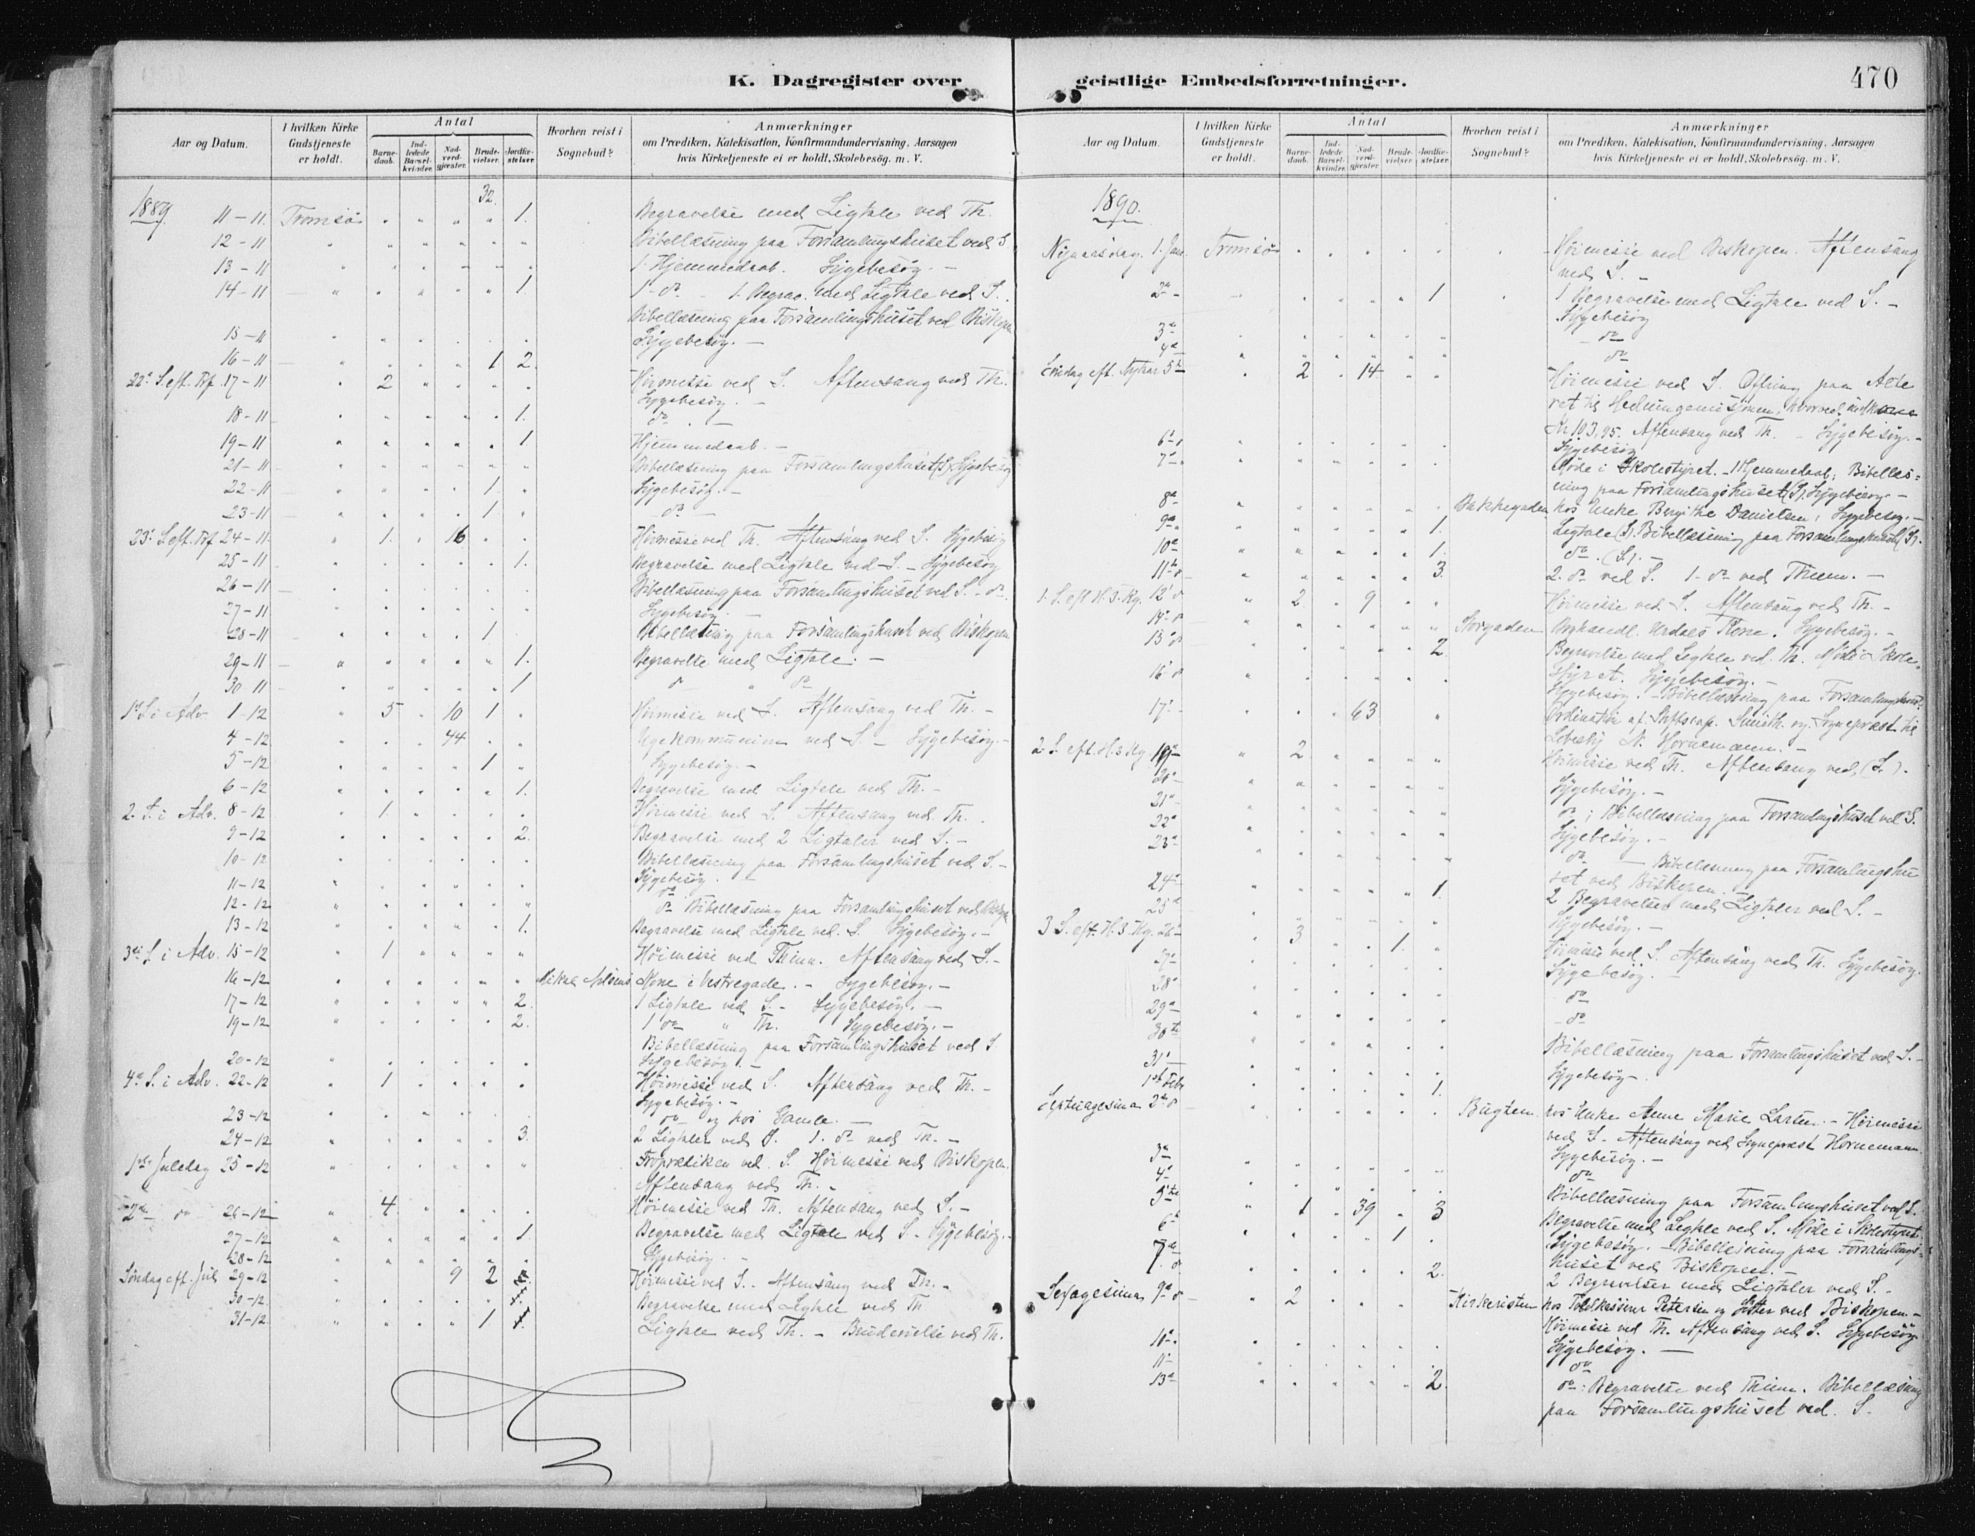 K. Dagregister over geistlige Embedsforretninger.
470
Aar og Datum.
I hvilken Kirke Gudstjeneste er holdt.
Antal
Barnedaab.
Indledede Barselkvinder.
Nadverdgjester.
Brudevielser.
Jordfæstelser.
Hvorhen reist i Sognebud?
Anmærkninger
om Prædiken, Katekisation, Konfirmandundervisning, Aarsagen
hvis Kirketjeneste ei er holdt, Skolebesög. m. V.
32
1889. 11-11. Tromsø 1. Begravelse med Ligtale ved Th.
12-11 Bibellæsning paa Forsamlingshuset ved S
13-11 1 Hjemmedaab. Sygebesøg. -
14-11 1 1 do - 1 Begrav. med Ligtale ved S.
Bibellæsning paa Forsamlingshuset ved Biskopen
15-11 Sygebesøg. -
16-11 1 2
22de S. eft. Trf. 17-11 2 Høimesse ved S. Aftensang ved Th.
Sygebesøg. -
18-11 1. do -
19-11 1 Hjemmedaab. -
21-11 Bibellæsning paa Forsamlingshuset (S) Sygebesøg
22-11 1 Sygebesøg. -
23-11 1 do -
23de S. eft. Trf 24-11 1. 16 Høimesse ved Th. Aftensang ved S. Sygebesøg
25-11 1. Begravelse med Ligtale ved S. - Sygebesøg
26-11 Bibellæsning paa Forsamlingshuset ved S. - do.
27-11 Sygebesøg. -
28-11 1 Bibellæsning paa Forsamlingshuset ved Biskopen
29-11 1. Begravelse med Ligtale. -
30-11 1 do " do
1ste S. i Adv. 1-12 5 10 1 Høimesse ved S. Aftensang ved Th. -
4-12 44 Ugekommunion ved S - Sygebesøg. -
5-12 1 Sygebesøg. -
6-12 1. Begravelse med Ligtale ved Th. -
2. S. i Adv. 8-12 1 Høimesse ved S. Aftensang ved Th.
9-12 2. Begravelse med 2 Ligtaler ved S. -
10-12 Bibellæsning paa Forsamlingshuset ved S. -
11-12 Sygebesøg. -
12-12 do Bibellæsning paa Forsamlingshuset ved Biskop
13-12 1. Begravelse med Ligtale ved S. Sygebesøg. -
3die S. i Adv. 15-12 1 Høimesse ved Thinn. Aftensang ved S. -
16-12 Kone i Vestregade. - Sygebesøg. -
17-12 2 1 Ligtale ved S. - Sygebesøg. -
19-12 2. 1 do " Th. Sygebesøg. -
Bibellæsning paa Forsamlingshuset ved S
20-12 Sygebesøg. -
4de S. i Adv. 22-12 1 Høimesse ved S. Aftensang ved Th. -
Sygebesøg. -
23-12 do og hos Gamle. -
24-12 3. 2 Ligtaler ved S. 1. do ved Th. -
1ste Juledag 25-12 Froprædiken ved S. Høimesse ved Biskopen.
Aftensang ved Th. -
2den do 26-12 4 Høimesse ved Th. Aftensang ved S. -
27-12 1. Begravelse med Ligtale ved S. Sygebesøg. -
28-12 Sygebesøg. -
Søndag eft. Jul 29-12 9 2 Høimesse ved S. Aftensang ved Th. -
30-12 Begravelse med Ligtale ved Th
31-12 1 Ligtale ved Th. - Brudevielse ved Th.
Aar og Datum.
I hvilken Kirke Gudstjeneste er holdt.
Antal
Barnedaab.
Indledede Barselkvinder.
Nadverdgjester.
Brudevielser.
Jordfæstelser.
Hvorhen reist i Sognebud?
Anmærkninger
om Prædiken, Katekisation, Konfirmandundervisning, Aarsagen
hvis Kirketjeneste ei er holdt, Skolebesög. m. V.
1890.
Nytaarsdag. 1. Jan. Tromsø Høimesse ved Biskopen. Aftensang
ved S. -
2de - 1 1 Begravelse med Ligtale ved S. -
Sygebesøg
3de - do
4de - do
Søndag eft. Nytaar 5te 2 14 Høimesse ved S. Ofring paa Alte
ret til Hedningemissionen, hvorved indkom
Kr 103,95. Aftensang ved Th. - Sygebesøg. -
6te Sygebesøg
7de Møde i Skolestyret. - 1 Hjemmedaab; Bibellæs-
ning paa Forsamlingshuset (S). Sygebesøg. -
8de Bakkegaden hos Enke Bergithe Danielsen; Sygebesøg. -
9de 1. Ligtale (S). Bibellæsning paa Forsamlingshuset (S).
10de 1. do. (S). -
11te 3. 2. do ved S. 1. do ved Thinn. -
1. S. eft. H. 3. Kg. 12te 2. 9 Høimesse ved S. Aftensang ved Th. -
14de Storgaden Boghandl. Urdals Kone. Sygebesøg. -
15de 2 Begravelse med Ligtale ved Th. Møde i Skole-
styret. Sygebesøg. -
16de Sygebesøg. - Bibellæsning paa Forsamlingshuset
17de 63 Ordination af Stiftscap. Smith og Sognepræst til
Lebesby N. Hornemann. -
2 S. eft. H. 3 Kg 19de 2 Høimesse ved Th. Aftensang ved (S.).
20de Sygebesøg. -
21de do; Bibellæsning paa Forsamlingshuset ved S.
22de Sygebesøg. -
23de do - Bibellæsning paa Forsamlingshu
set ved Biskopen.
24de 1 2 Begravelser med Ligtaler ved S. -
25de Sygebesøg. -
3 S. eft. H. 3 Kg. 26de 3 1. Høimesse ved S. Aftensang ved Th. Sygebesøg.
27de Sygebesøg. -
28de do
29de do
30te Bibellæsning paa Forsamlingshuset ved S. -
31te Sygebesøg -
1ste Febr 1.
Septuagesima 2den Bugten hos Enke Anne Marie Larsen. - Høimesse
ved S. Aftensang ved Sognepræst Hornemann.
3de Sygebesøg. -
4de do
5te Bibellæsning paa Forsamlingshuset ved S.
1 39 3 Begravelse med Ligtale ved S. Møde i Skolestyret.
6te 1 Sygebesøg. - Bibellæsning paa Forsamlings-
huset ved Biskopen. -
7de 2. 2 Begravelser med Ligtaler ved S. -
Sexagesima 9de 2 Kirkeristen hos Toldkasserer Petersen og ved Biskopen -
Høimesse ved Th. Aftensang ved S. Sygebesøg.
Sygebesøg. -
11te do
13de 2. do: Begravelse ved Thinn. Bibellæsning
paa Forsamlingshuset ved S.